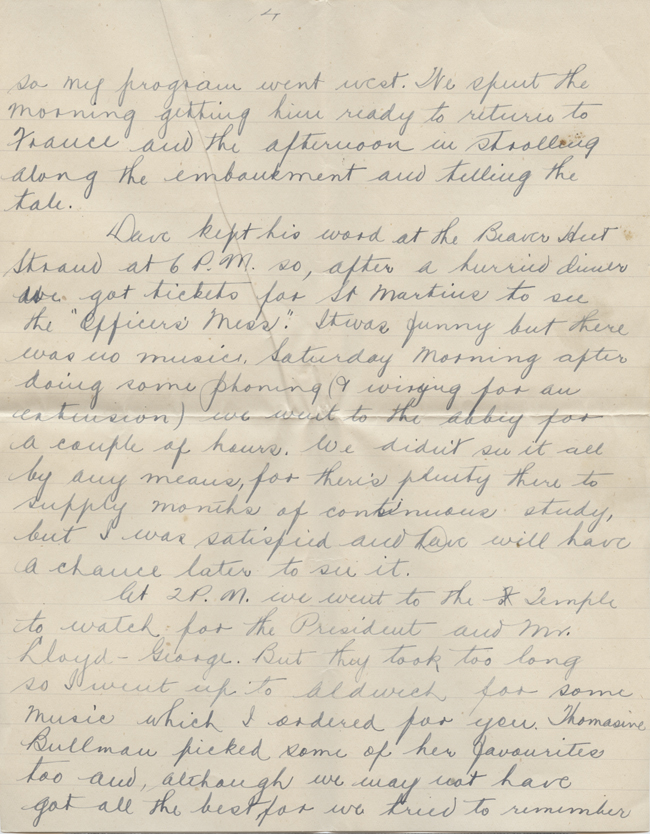 4
so my program went west. We spent the
morning getting him ready to return to
France and the afternoon in strolling
along the embankment and telling the
tale.
Dave kept his word at the Beaver Hut
Strand at 6 P.M. so, after a hurried dinner
we got tickets for St Martins to see
the "Officers' Mess". It was funny but there
was no music. Saturday morning after
doing some phoning (& wiring for an
extension) we went to the abbey for
a couple of hours. We didn't see it all
by any means, for there's plenty there to
supply months of continuous study,
but I was satisfied and Dave will have
a chance later to see it.
At 2 P.M. we went to the Temple
to watch for the President and Mr.
Lloyd-George. But they took too long
so I went up to Aldwich for some
music which I ordered for you. Thomasine
Bullman picked some of her favourites
too and, although we may not have
got all the best for we tried to remember